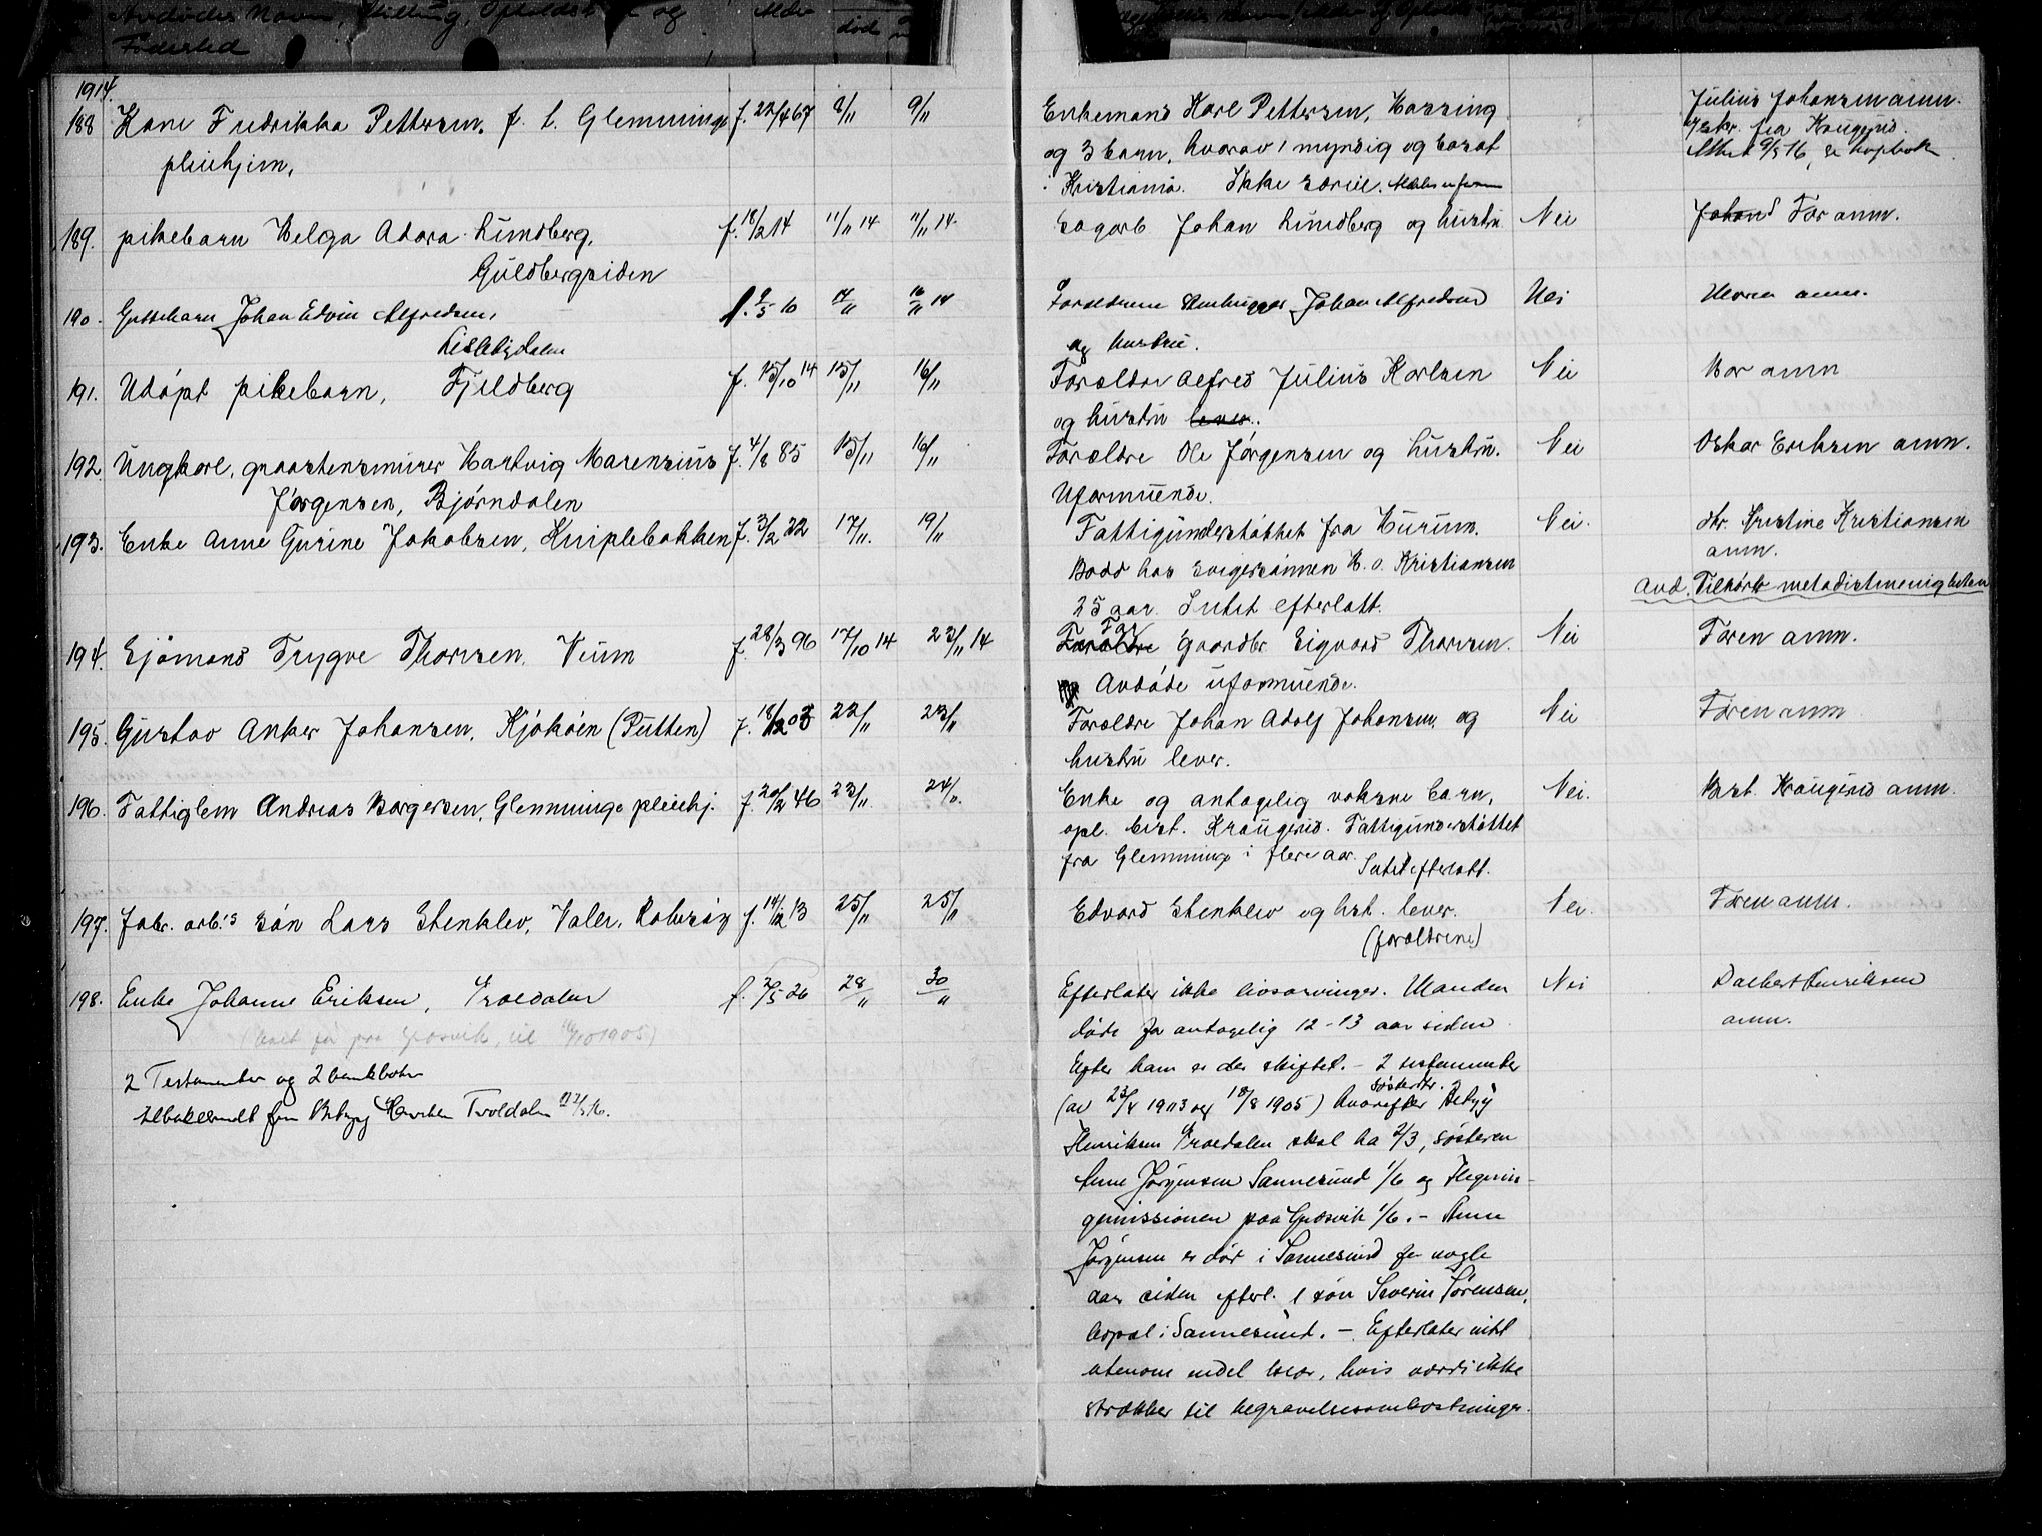 Avdødes Navn, Stilling, Opholdssted og
Fødested
Alder
død
1914.
188 Kone Fredrikka Pettersen, f. l. Glemminge f. 22/4 67 8/11 9/11
pleiehjem,
Enkemand Karl Pettersen,
og 3 barn, hvorav 1 myndig og bosat
i Kristiania. Ikke særeie.
Julius Johansen anm.
fra Kraugerød.
9/5 16, se kopbok
189. pikebarn Helga Adora Lundberg, f. 18/2 14 11/11 14 11/11 14.
Guldbergsiden
Sagarb. Johan Lundberg og hustru Nei
Far anm.
190. Guttebarn Johan Edvin Alfredsen, f. 9/5 10 14/11 16/11 14
Lislebydalen
Forældrene Stenhugger Johan Alfredsen Nei
og hustru.
Moren anm.
191. Udøpt pikebarn, Fjeldberg f. 15/10 14 15/11 16/11
Forældre Alfred Julius Karlsen Nei
og hustru lever.
Mor anm
192. Ungkarl, graastensmurer Hartvig Marensius f. 4/8 85 15/11 16/11
Jørgensen, Bjørndalen
Forældre Ole Jørgensen og hustru. Nei
Uformuende.
Oskar Eriksen anm.
193. Enke Anne Gurine Jakobsen, Kniplebakken f. 3/2 22 17/11. 19/11
Fattigunderstøttet fra Hurum. Nei.
Bodd hos svigersønnen H. O. Kristiansen
25 aar. Intet efterlatt.
Fr. Kristine Kristiansen
anm.
Avd. Tilhørte metodistmenigheten
194. Sjømand Trygve Thorsen, Veum f. 28/3 96 17/10 14 23/11 14
Far
Forældre gaardbr Sigvard Thorsen. Nei
Avdøde uformuende.
Faren anm.
195. Gustav Anker Johansen, Kjøkøen (Putten) f. 18/12 03 22/11 23/11
Forældre Johan Adolf Johansen og Nei
hustru lever.
Faren anm
196. Fattiglem Andreas Borgersen, Glemminge pleiehj. f. 20/2 46 23/11. 24/11.
Enke og antagelig voksne barn, Nei.
opl. best. Kraugerud. Fattigunderstøttet
fra Glemminge i flere aar. Intet efterlatt.
Best. Kraugerud anm.
197. Fabr. arb.'s søn Lars Stenklev, Valer, Rolvsøy f. 14/12 13 25/11 25/11
Edvard Stenklev og hst. lever. Nei.
(forældrene)
Faren anm.
198. Enke Johanne Eriksen, Troldalen f. 2/5 26 28/11 30/11
(boet før paa Græsvik, til 1905)
2 Testamenter og 2 bankbøker
tilbakesendt fru Betzy Henriksen Troldalen
Efterlater ikke livsarvinger. Manden Nei
døde for antagelig 12-13 aar siden
Efter ham er der skiftet. – 2 testamenter
søsterdtr.
(av 23/4 1903 og 18/8 1905) hvorefter Betzy
Henriksen Troldalen skal ha 2/3, søsteren
Anne Jørgensen Sannesund 1/6 og Hedningemissionen
paa Græsvik 1/6. – Anne
Jørgensen er død i Sannesund for nogle
aar siden efterl. 1 søn Severin Sørensen,
bopæl i Sannesund. – Efterlater intet
utenom endel løsør, hvis værdi ikke
strækker til begravelsesomkostninger.
Dalbert Henriksen
anm.